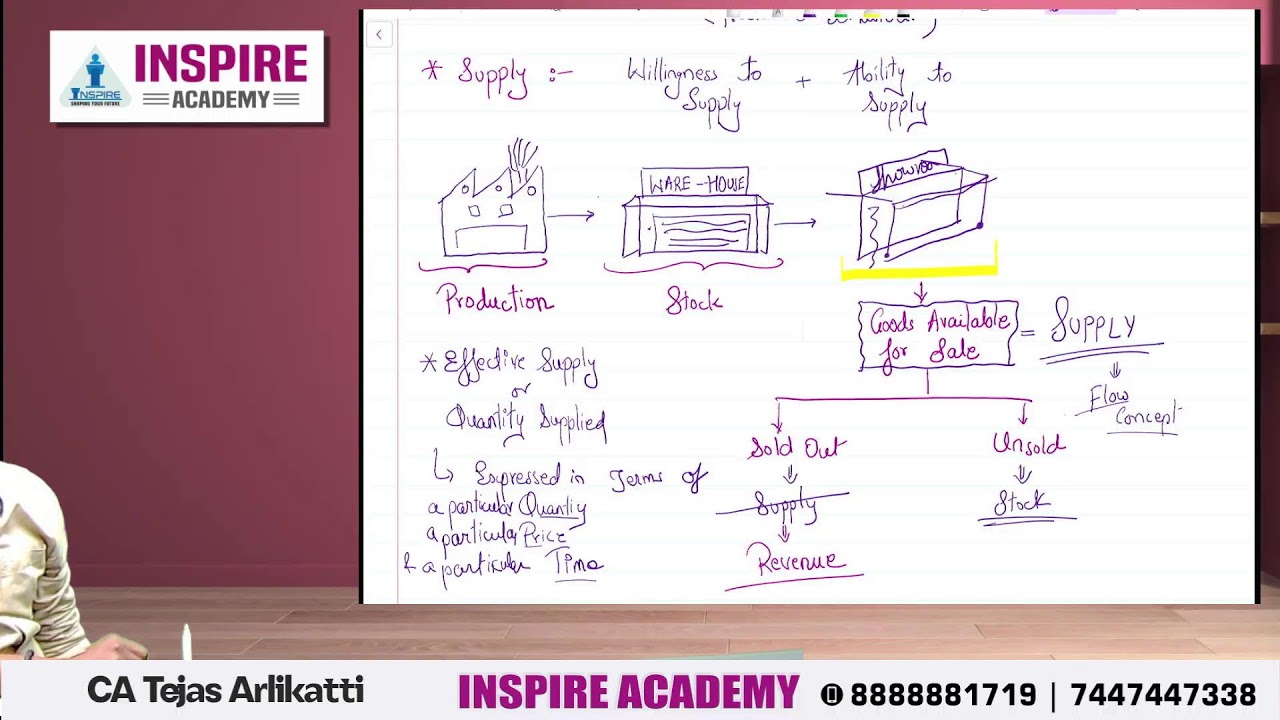 INSPIRE
ACADEMY
INSPIRE
SHAPING YOUR FUTURE
* Supply :- Willingness to Supply + Ability to Supply
WARE-HOUSE
Showroom
Production
Stock
Goods Available for Sale = SUPPLY
Flow Concept
* Effective Supply
or
Quantity Supplied
Expressed in Terms of
a particular Quantiy
a particular Price
& a particular Time
Sold Out
Supply
Revenue
Unsold
Stock
CA Tejas Arlikatti
INSPIRE ACADEMY
8888881719 | 7447447338